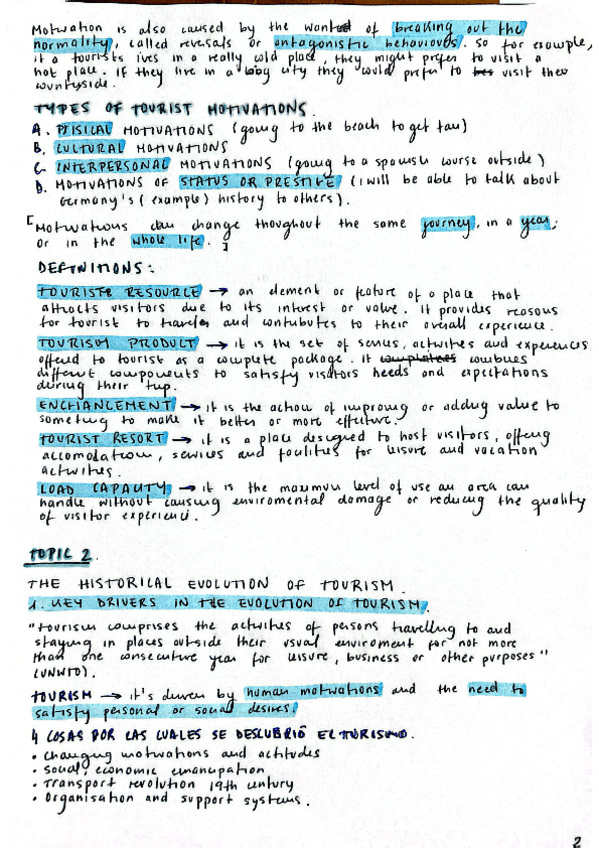 Motivation is also caused by the wanted of breaking out the
normality, called reversals or antagonistic behaviours. So for example,
if a tourists lives in a really cold place, they might prefer to visit a
hot place. If they live in a big city they would prefer to visit the
countryside.
TYPES OF TOURIST MOTIVATIONS.
A. PHISICAL MOTIVATIONS (going to the beach to get tan)
B. CULTURAL MOTIVATIONS
C. INTERPERSONAL MOTIVATIONS (going to a spanish course outside)
D. MOTIVATIONS OF STATUS OR PRESTIGE (I will be able to talk about
Germany's (example) history to others).
[Motivations can change thoughout the same journey, in a year,
or in the whole life.]
DEFINITIONS:
TOURISTS RESOURCE → an element or feature of a place that
attracts visitors due to its interest or value. It provides reasons
for tourist to traveler and contributes to their overall experience.
TOURISM PRODUCT → it is the set of services, activities and experiences
offered to tourist as a complete package. It completees combines
different components to satisfy visitors needs and expectations
during their trip.
ENCHANCEMENT → it is the action of improving or adding value to
something to make it better or more effective.
TOURIST RESORT → it is a place designed to host visitors, offering
accomodation, services and facilities for leisure and vacation
activities.
LOAD CAPACITY → it is the maximum level of use an area can
handle without causing enviromental damage or reducing the quality
of visitor experience.
TOPIC 2.
THE HISTORICAL EVOLUTION OF TOURISM.
1. KEY DRIVERS IN THE EVOLUTION OF TOURISM.
"Tourism comprises the activities of persons travelling to and
staying in places outside their usual enviroment for not more
than one consecutive year for leisure, business or other purposes"
(UNWTO).
TOURISM → it's driven by human motivations and the need to
satisfy personal or social desires.
4 COSAS POR LAS CUALES SE DESCUBRIÓ EL TURISMO.
• Changing motivations and actitudes
• Social, economic emancipation
• Transport revolution 19th century
• Organisation and support systems.
2